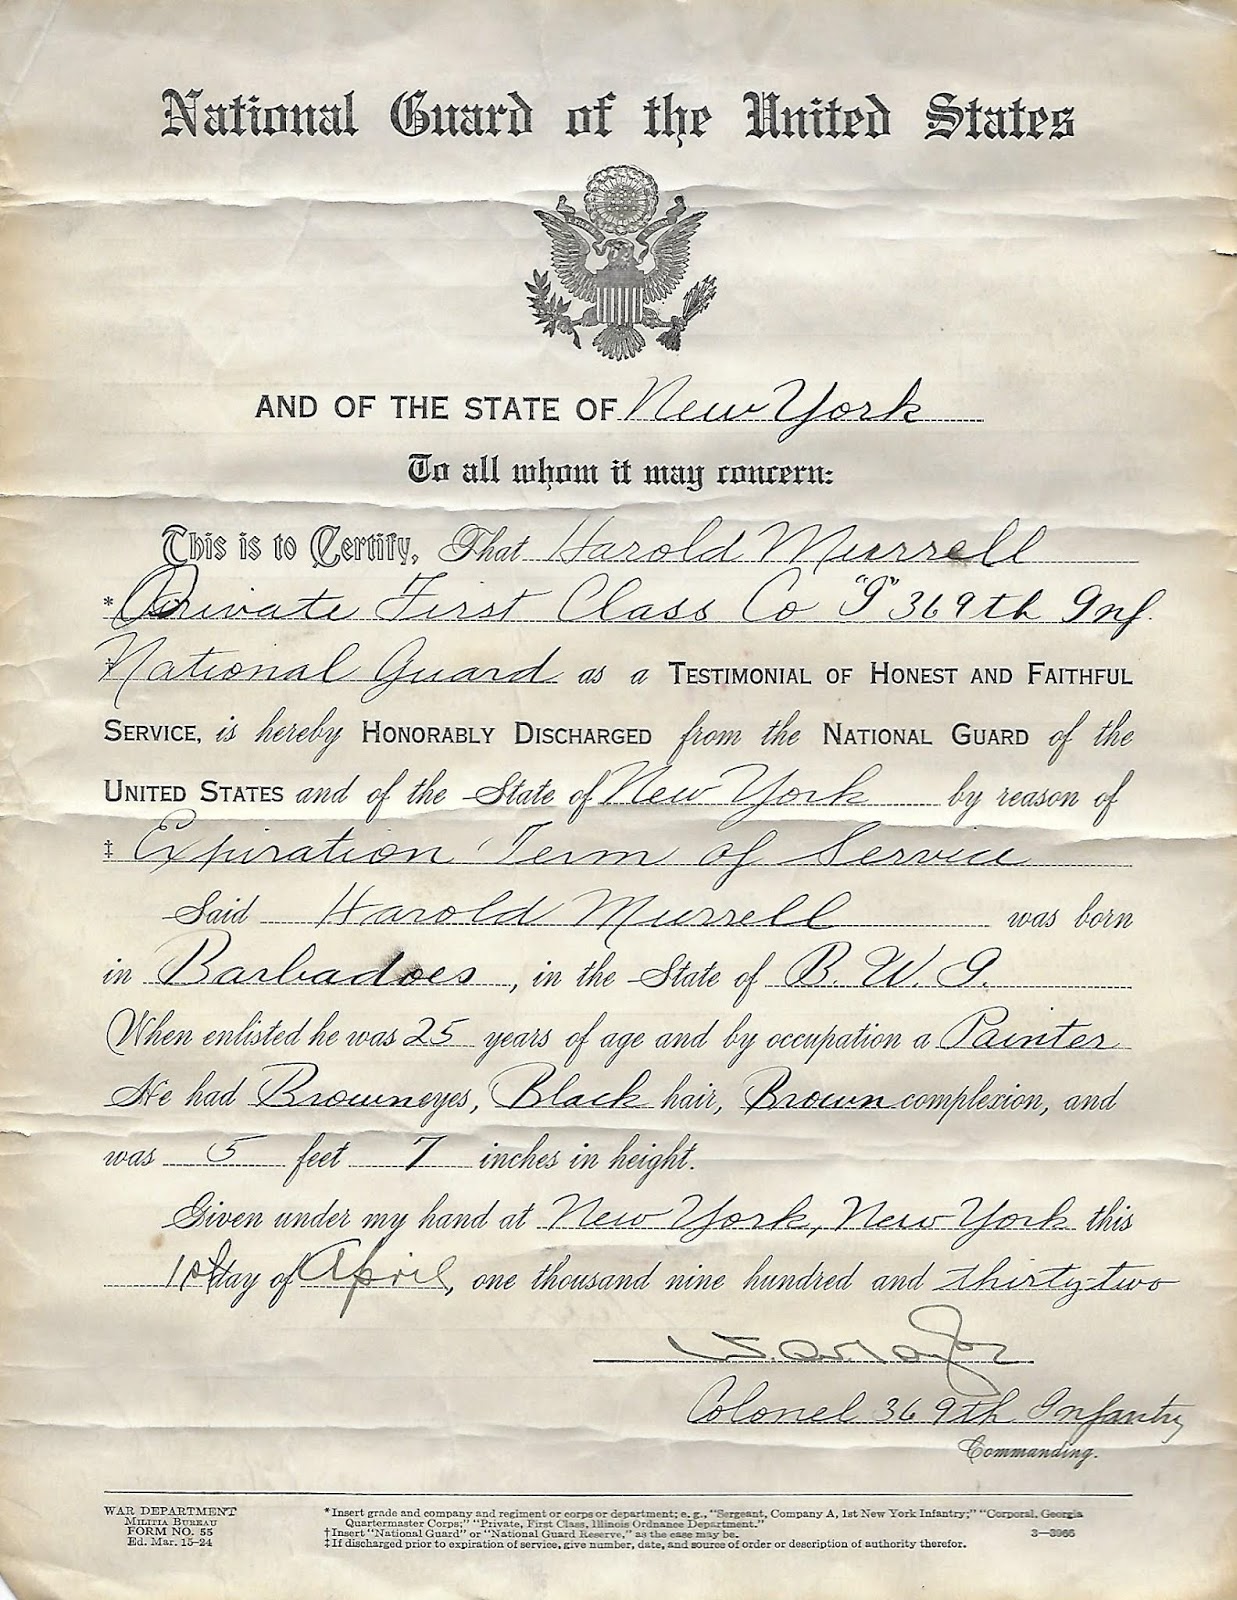 National Guard of the United States
AND OF THE STATE OF New York
To all whom it may concern:
This is to Certify, That Harold Murrell
* Private First Class Co "I" 369th Inf.
† National Guard as a TESTIMONIAL OF HONEST AND FAITHFUL
SERVICE, is hereby HONORABLY DISCHARGED from the NATIONAL GUARD of the
UNITED STATES and of the State of New York by reason of
‡ Expiration Term of Service
Said Harold Murrell was born
in Barbadoes, in the State of B. W. I.
When enlisted he was 25 years of age and by occupation a Painter
He had Brown eyes, Black hair, Brown complexion, and
was 5 feet 7 inches in height.
Given under my hand at New York, New York this
1st day of April, one thousand nine hundred and thirty-two
Colonel 369th Infantry
Commanding.
WAR DEPARTMENT
MILITIA BUREAU
FORM NO. 55
Ed. Mar. 15-24
*Insert grade and company and regiment or corps or department; e. g., "Sergeant, Company A, 1st New York Infantry;" "Corporal, Georgia
Quartermaster Corps;" "Private, First Class, Illinois Ordnance Department."
†Insert "National Guard" or "National Guard Reserve," as the case may be.
3—3966
‡If discharged prior to expiration of service, give number, date, and source of order or description of authority therefor.